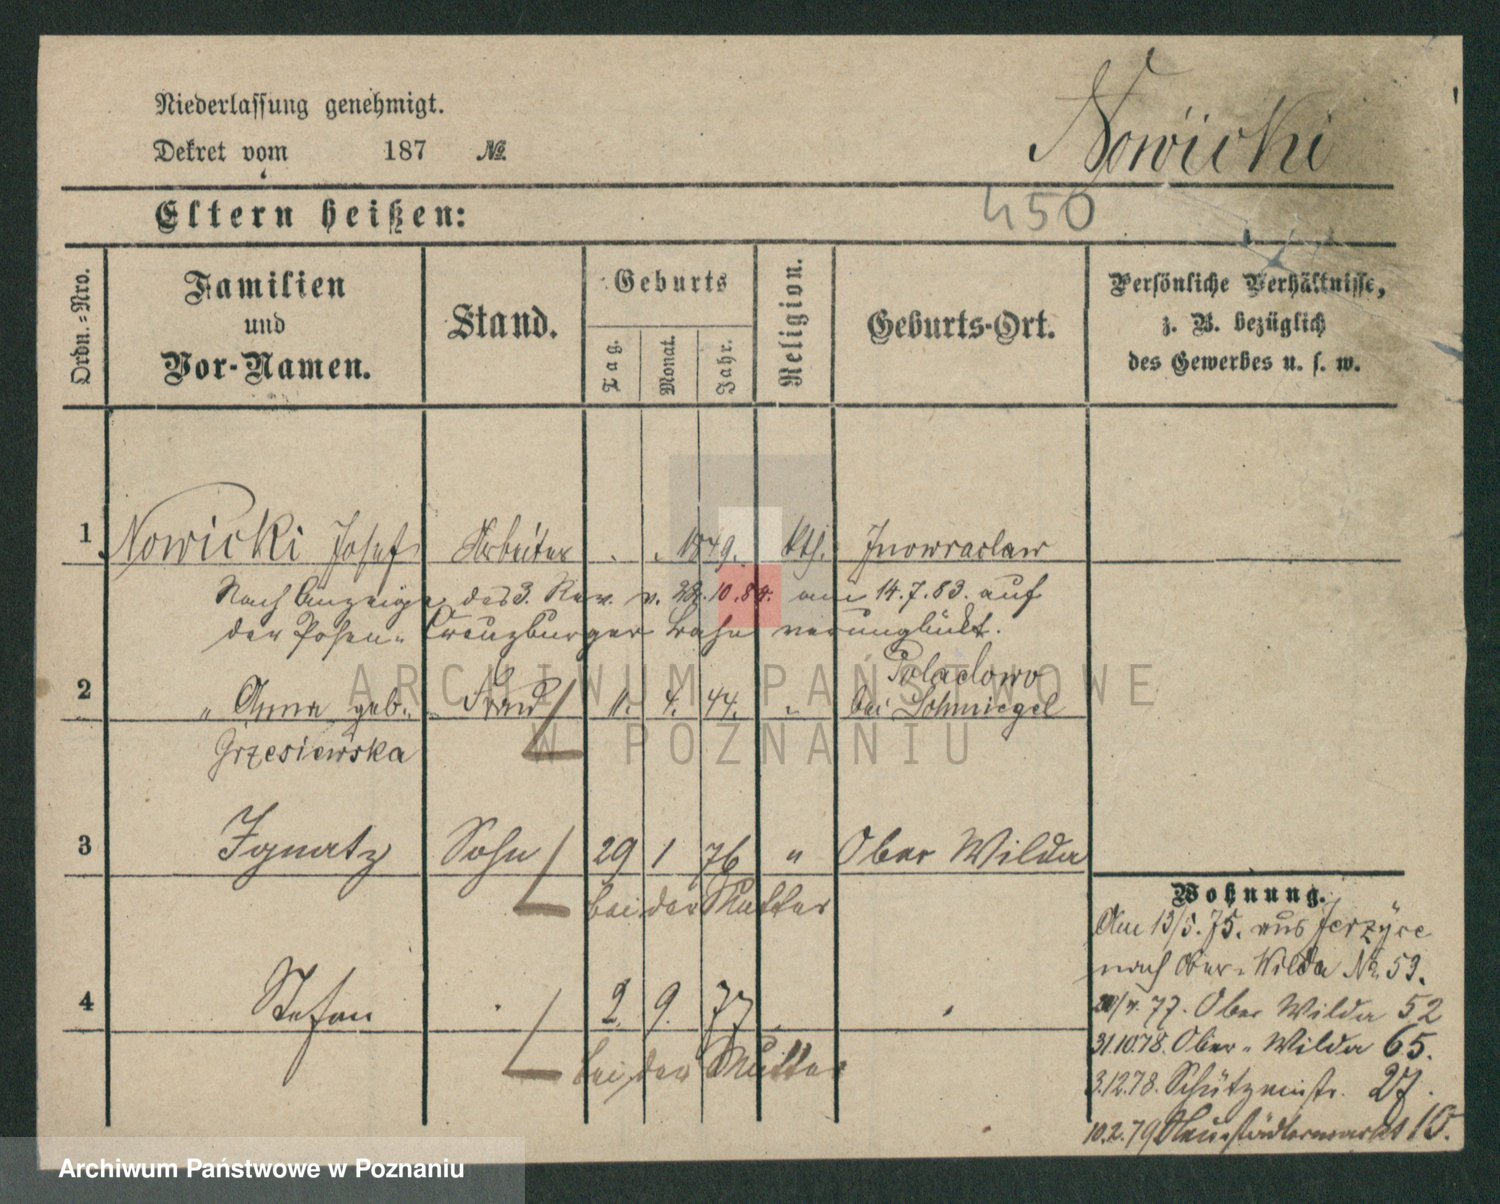 Niederlassung genehmigt.
Dekret vom 187 №
Nowicki
450
Eltern heißen:
Ordn.-Nro.
Familien
und
Vor-Namen.
Stand.
Geburts
Tag.
Monat.
Jahr.
Religion.
Geburts-Ort.
Persönliche Verhältnisse,
z. B. bezüglich
des Gewerbes u. s. w.
1 Nowicki Josef Arbeiter . . 1849. kth. Inowraclaw
Nach Anzeige des 3. Rev. v. 10.84. am 14.7.83. auf
der Posen-Creuzburger Bahn verunglückt.
2 " Anna geb. Frau 11. 4. 44. " Poladowo
bei Schmiegel
Grzesiewska
3 Ignatz Sohn 29 1 76 " Ober Wilda
bei der Mutter
4 Stefan . 2. 9. 77 .
bei der Mutter
Wohnung.
Am 13/5.75. aus Jerzyce
nach Ober-Wilda No 53.
77. Ober Wilda 52
31.10.78. Ober-Wilda 65.
3.12.78. Schützenstr. 27.
10.2.79 Neustädtermarkt 10.
ARCHIWUM PAŃSTWOWE
W POZNANIU
Archiwum Państwowe w Poznaniu